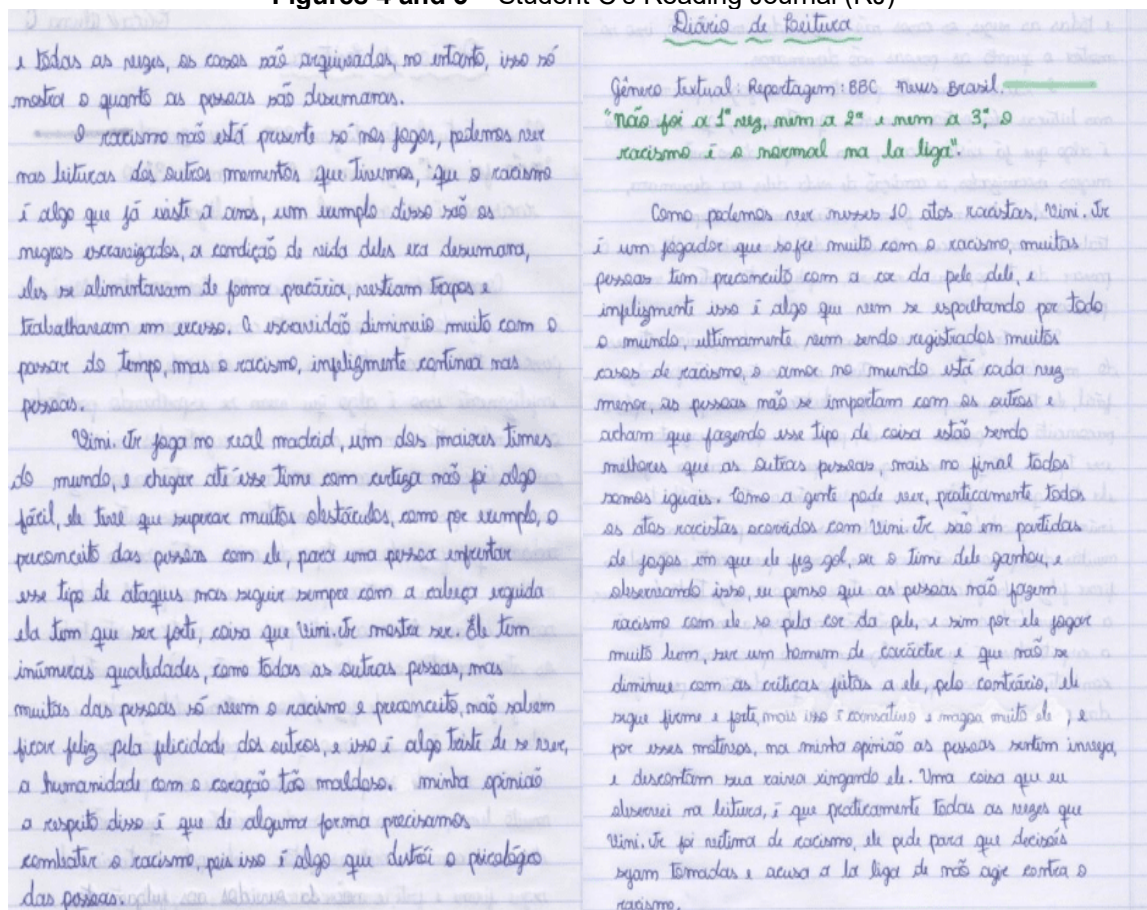 Figures 4 and 5 – Student C's Reading Journal (RJ)
e todas as vezes, os casos são arquivados, no entanto, isso só
mostra o quanto as pessoas são desumanas.
O racismo não está presente só nos jogos, podemos ver
nas leituras dos outros momentos que tivemos, que o racismo
é algo que já existe a anos, um exemplo disso são os
negros escravizados, a condição de vida deles era desumana,
eles se alimentavam de forma precária, vestiam trapos e
trabalhavam em excesso. A escravidão diminuio muito com o
passar do tempo, mas o racismo, infelizmente continua nas
pessoas.
Vini. Jr joga no real madrid, um dos maiores times
do mundo, e chegar até esse time com certeza não foi algo
fácil, ele teve que superar muitos obstáculos, como por exemplo, o
preconceito das pessoas com ele, para uma pessoa enfrentar
esse tipo de ataques mas seguir sempre com a cabeça erguida
ela tem que ser forte, coisa que Vini. Jr mostra ser. Ele tem
inúmeras qualidades, como todas as outras pessoas, mas
muitas das pessoas só veem o racismo e preconceito, não sabem
ficar feliz pela felicidade dos outros, e isso é algo triste de se ver,
a humanidade com o coração tão maldoso. minha opinião
a respeito disso é que de alguma forma precisamos
combater o racismo, pois isso é algo que destrói o psicológico
das pessoas.
Diário de Leitura
Gênero textual: Reportagem: BBC News Brasil.
"não foi a 1ª vez, nem a 2ª e nem a 3ª, o
racismo é o normal na la liga".
Como podemos ver nesses 10 atos racistas, Vini. Jr
é um jogador que sofre muito com o racismo, muitas
pessoas tem preconceito com a cor da pele dele, e
infelizmente isso é algo que vem se espalhando por todo
o mundo, ultimamente vem sendo registrados muitos
casos de racismo, o amor no mundo está cada vez
menor, as pessoas não se importam com os outros e
acham que fazendo esse tipo de coisa estão sendo
melhores que as outras pessoas, mais no final todos
somos iguais. Como a gente pode ver, praticamente todos
os atos racistas ocorridos com Vini. Jr são em partidas
de jogos em que ele fez gol, ou o time dele ganhou, e
observando isso, eu penso que as pessoas não fazem
racismo com ele so pela cor da pele, e sim por ele jogar
muito bem, ser um homem de carácter e que não se
diminue com as criticas feitas a ele, pelo contrário, ele
segue firme e forte, mais isso é cansativo e magoa muito ele ; e
por esses motivos, na minha opinião as pessoas sentem inveja,
e descontam sua raiva xingando ele. Uma coisa que eu
observei na leitura, é que praticamente todas as vezes que
Vini. Jr foi vítima de racismo, ele pede para que decisões
sejam tomadas e acusa a la liga de não agir contra o
racismo.